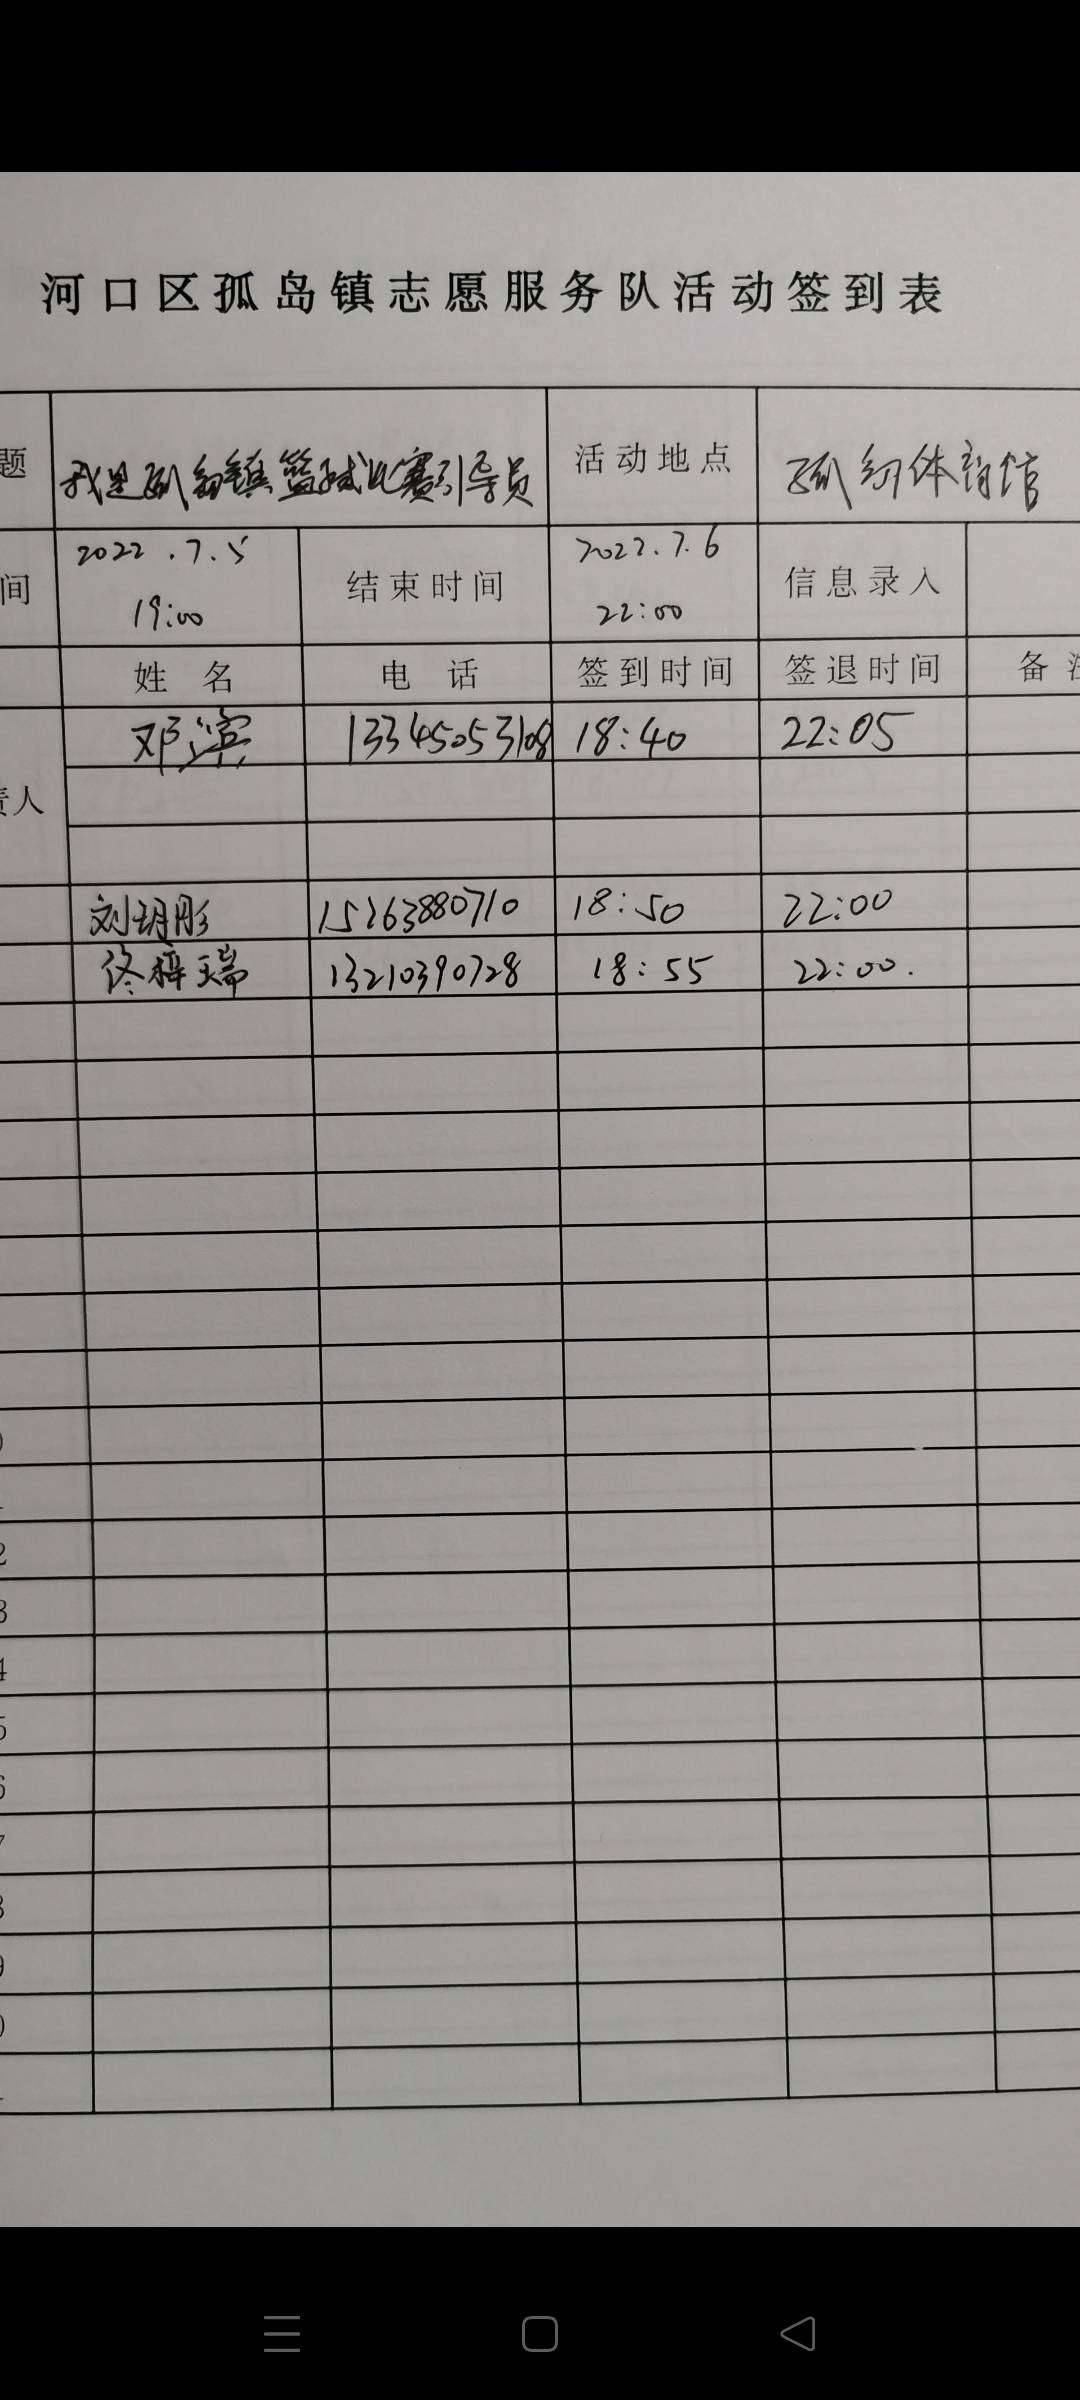 河口区孤岛镇志愿服务队活动签到表
题 我是孤岛镇篮球比赛引导员 活动地点 孤岛体育馆
间 2022.7.5 19:00 结束时间 2022.7.6 22:00 信息录入
姓名 电话 签到时间 签退时间 备注
责人 邓滨 13345053108 18:40 22:05
刘玥彤 15263880710 18:50 22:00
佟梓瑞 13210390728 18:55 22:00.
0
1
2
3
4
5
6
7
8
9
0
1